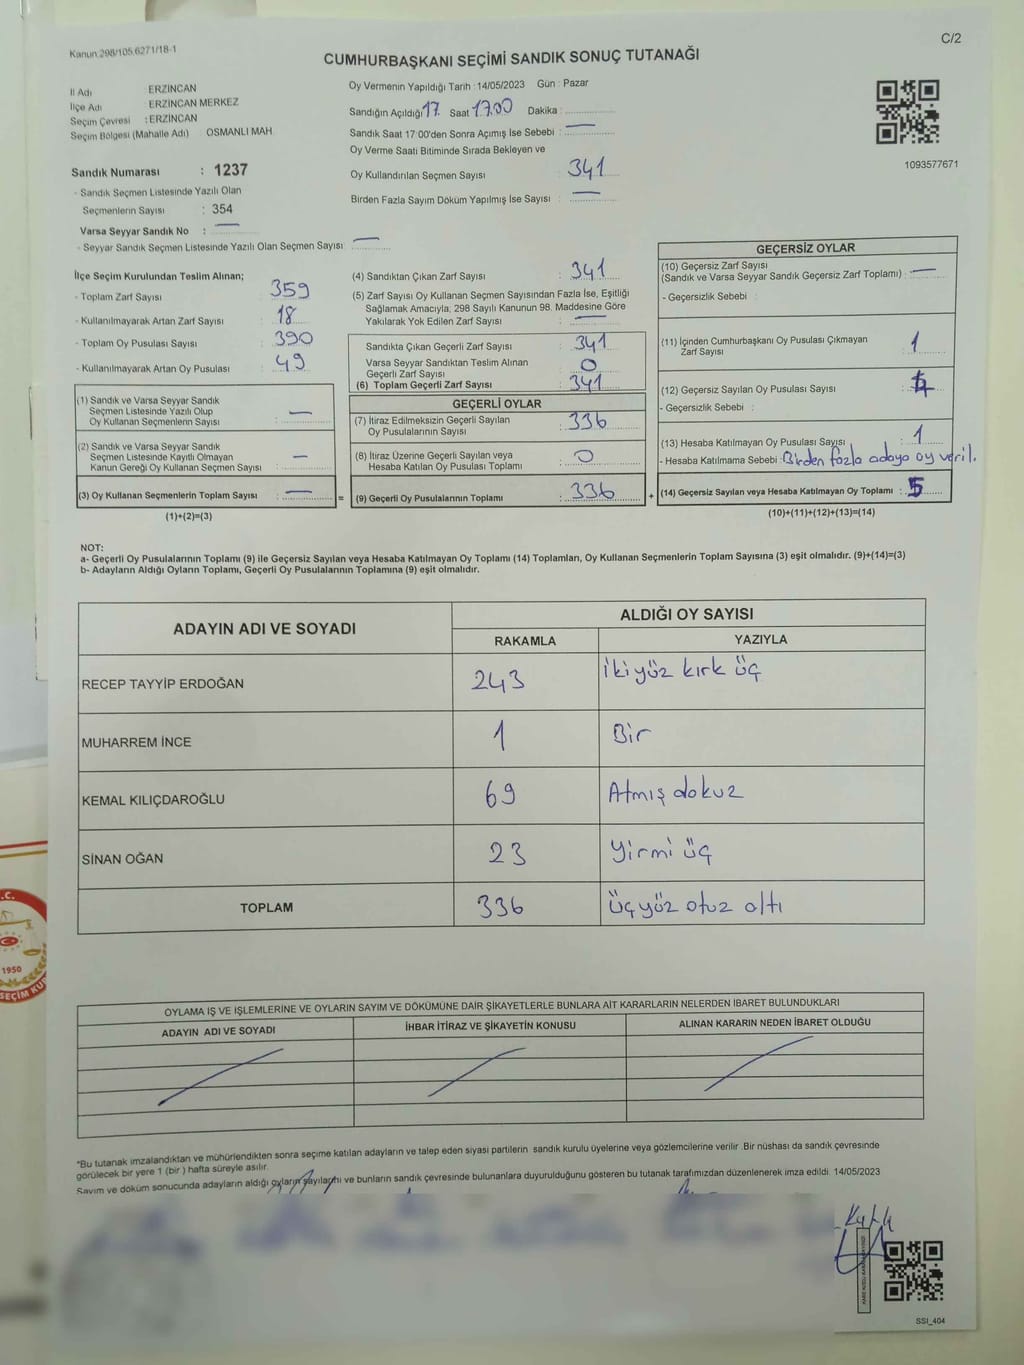 Kanun 298/105.6271/18-1
C/2
CUMHURBAŞKANI SEÇİMİ SANDIK SONUÇ TUTANAĞI
İl Adı ERZİNCAN
İlçe Adı ERZİNCAN MERKEZ
Seçim Çevresi : ERZİNCAN
Seçim Bölgesi (Mahalle Adı) OSMANLI MAH.
Sandık Numarası : 1237
- Sandık Seçmen Listesinde Yazılı Olan
Seçmenlerin Sayısı : 354
Varsa Seyyar Sandık No : —
- Seyyar Sandık Seçmen Listesinde Yazılı Olan Seçmen Sayısı : —
Oy Vermenin Yapıldığı Tarih : 14/05/2023 Gün : Pazar
Sandığın Açıldığı 17. Saat 17.00 Dakika :
Sandık Saat 17:00'den Sonra Açımış İse Sebebi : —
Oy Verme Saati Bitiminde Sırada Bekleyen ve
Oy Kullandırılan Seçmen Sayısı : 341
Birden Fazla Sayım Döküm Yapılmış İse Sayısı : —
1093577671
İlçe Seçim Kurulundan Teslim Alınan;
- Toplam Zarf Sayısı : 359
- Kullanılmayarak Artan Zarf Sayısı : 18
- Toplam Oy Pusulası Sayısı : 390
- Kullanılmayarak Artan Oy Pusulası : 49
(1) Sandık ve Varsa Seyyar Sandık
Seçmen Listesinde Yazılı Olup
Oy Kullanan Seçmenlerin Sayısı : —
(2) Sandık ve Varsa Seyyar Sandık
Seçmen Listesinde Kayıtlı Olmayan
Kanun Gereği Oy Kullanan Seçmen Sayısı : —
(3) Oy Kullanan Seçmenlerin Toplam Sayısı : —
(1)+(2)=(3)
(4) Sandıktan Çıkan Zarf Sayısı : 341
(5) Zarf Sayısı Oy Kullanan Seçmen Sayısından Fazla İse, Eşitliği
Sağlamak Amacıyla, 298 Sayılı Kanunun 98. Maddesine Göre
Yakılarak Yok Edilen Zarf Sayısı : —
Sandıkta Çıkan Geçerli Zarf Sayısı : 341
Varsa Seyyar Sandıktan Teslim Alınan
Geçerli Zarf Sayısı : 0
(6) Toplam Geçerli Zarf Sayısı : 341
GEÇERLİ OYLAR
(7) İtiraz Edilmeksizin Geçerli Sayılan
Oy Pusulalarının Sayısı : 336
(8) İtiraz Üzerine Geçerli Sayılan veya
Hesaba Katılan Oy Pusulası Toplamı : 0
= (9) Geçerli Oy Pusulalarının Toplamı : 336
GEÇERSİZ OYLAR
(10) Geçersiz Zarf Sayısı
(Sandık ve Varsa Seyyar Sandık Geçersiz Zarf Toplamı) : —
- Geçersizlik Sebebi :
(11) İçinden Cumhurbaşkanı Oy Pusulası Çıkmayan
Zarf Sayısı : 1
(12) Geçersiz Sayılan Oy Pusulası Sayısı :
- Geçersizlik Sebebi :
(13) Hesaba Katılmayan Oy Pusulası Sayısı : 1
- Hesaba Katılmama Sebebi : Birden fazla adaya oy veril.
+ (14) Geçersiz Sayılan veya Hesaba Katılmayan Oy Toplamı : 5
(10)+(11)+(12)+(13)=(14)
NOT:
a- Geçerli Oy Pusulalarının Toplamı (9) ile Geçersiz Sayılan veya Hesaba Katılmayan Oy Toplamı (14) Toplamları, Oy Kullanan Seçmenlerin Toplam Sayısına (3) eşit olmalıdır. (9)+(14)=(3)
b- Adayların Aldığı Oyların Toplamı, Geçerli Oy Pusulalarının Toplamına (9) eşit olmalıdır.
ADAYIN ADI VE SOYADI
ALDIĞI OY SAYISI
RAKAMLA YAZIYLA
RECEP TAYYİP ERDOĞAN 243 İkiyüz kırk üç
MUHARREM İNCE 1 Bir
KEMAL KILIÇDAROĞLU 69 Atmış dokuz
SİNAN OĞAN 23 Yirmi üç
TOPLAM 336 Üçyüz otuz altı
OYLAMA İŞ VE İŞLEMLERİNE VE OYLARIN SAYIM VE DÖKÜMÜNE DAİR ŞİKAYETLERLE BUNLARA AİT KARARLARIN NELERDEN İBARET BULUNDUKLARI
ADAYIN ADI VE SOYADI İHBAR İTİRAZ VE ŞİKAYETİN KONUSU ALINAN KARARIN NEDEN İBARET OLDUĞU
*Bu tutanak imzalandıktan ve mühürlendikten sonra seçime katılan adayların ve talep eden siyasi partilerin sandık kurulu üyelerine veya gözlemcilerine verilir. Bir nüshası da sandık çevresinde
görülecek bir yere 1 (bir) hafta süreyle asılır.
Sayım ve döküm sonucunda adayların aldığı oyların sayılarını ve bunların sandık çevresinde bulunanlara duyurulduğunu gösteren bu tutanak tarafımızdan düzenlenerek imza edildi. 14/05/2023
SSI_404
1950